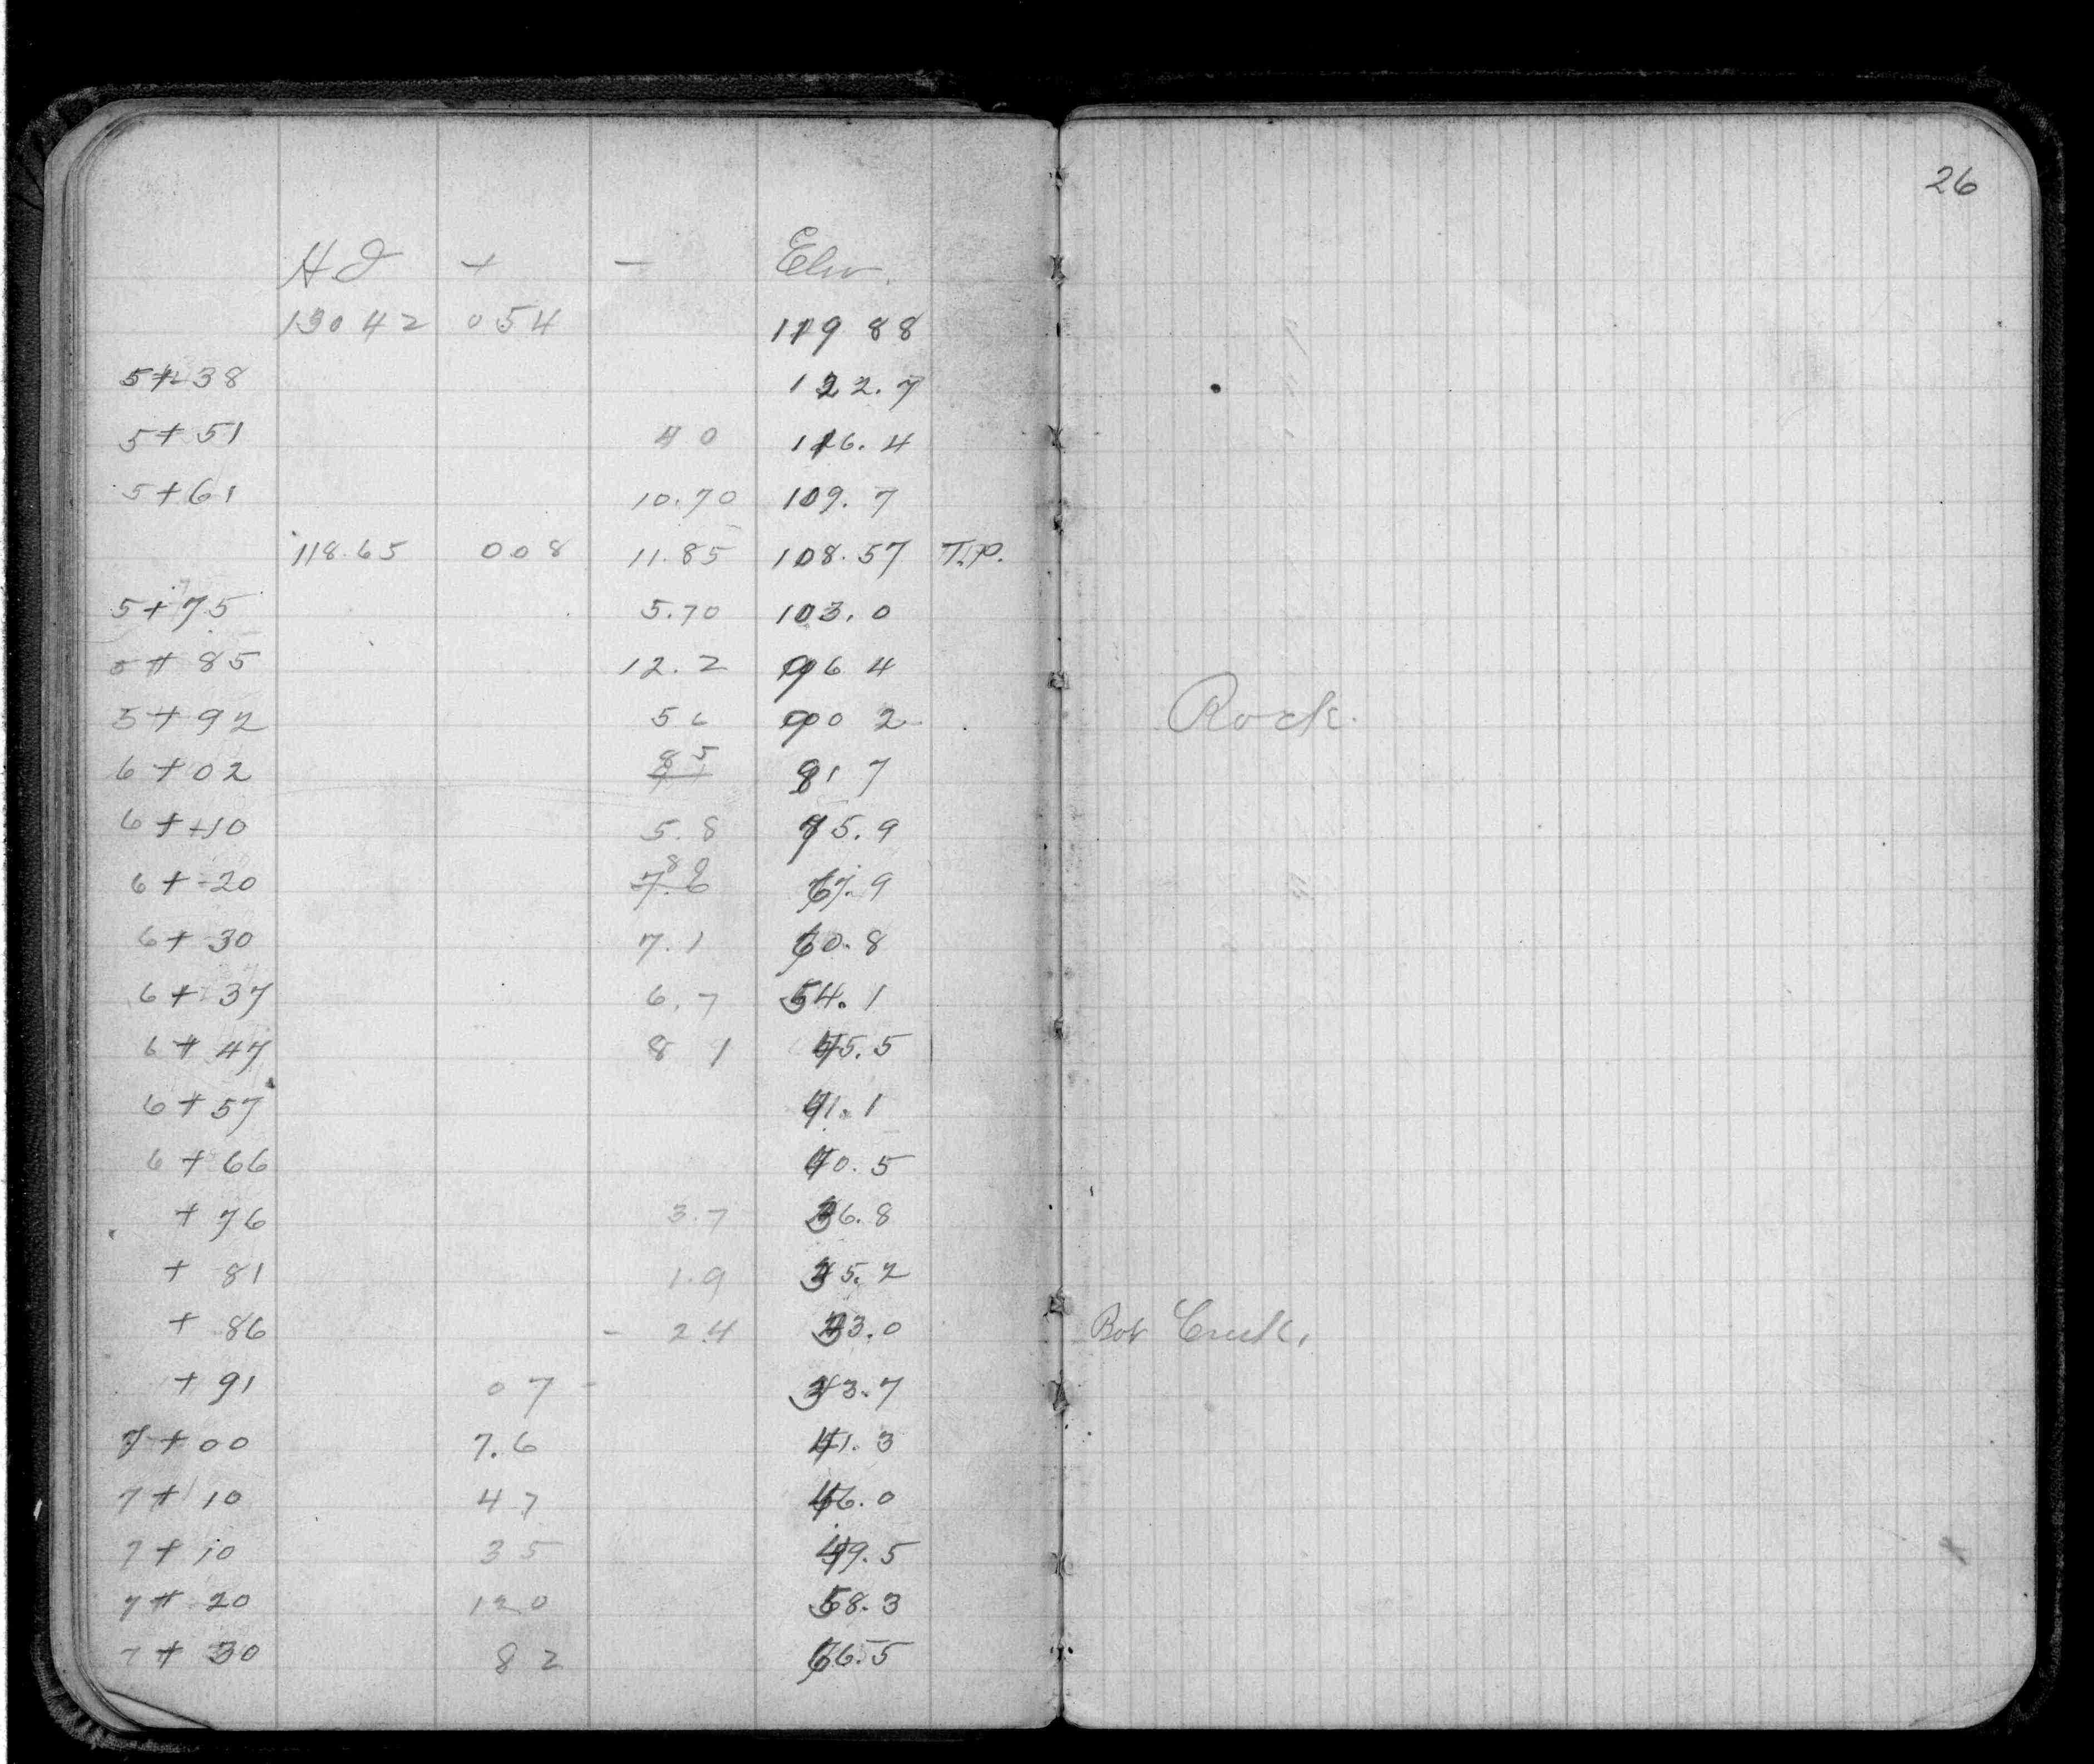 26
HI + - Elev.
130 42 0 54 119 88
5+38 122.7
5+51 4 0 116.4
5+61 10.70 109.7
118.65 0 0 8 11.85 108.57 T.P.
5+75 5.70 103.0
5+85 12.2 96 4
5+92 90 2 Rock.
6+02 8 5 81 7
6+10 5.8 75.9
6+20 7.6 8 0 67.9
6+30 7.1 60.8
6+37 6.7 54.1
6+47 8 1 45.5
6+57 41.1
6+66 40.5
+76 3.7 36.8
+81 1.9 35.2
+86 - 2.4 33.0 Bot Creek.
+91 0 7 - 33.7
7+00 7.6 41.3
7+10 4 7 46.0
7+10 3 5 49.5
7+20 12 0 58.3
7+30 8 2 66.5